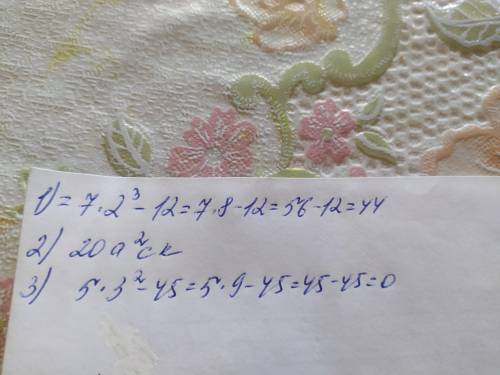 1) = 7·2³-12=7·8-12=56-12=44
2) 20a²ck
3) 5·3²-45=5·9-45=45-45=0